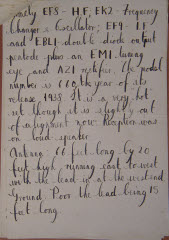 namely EF8 - H.F, EK2 - Frequency
Changer & Oscillator, EF9 I.F
and EBL1 double diode output
pentode plus an EM1 tuning
eye and AZ1 rectifier. The model
number is 660 the year of its
release, 1938. It is a very hot
set though it is slightly out
of alignment now. Reception was
on loud-speaker.
Antenna 66 feet long by 30
feet high running east to west
with the lead in at the west end
Ground Poor the lead being 15
feet long